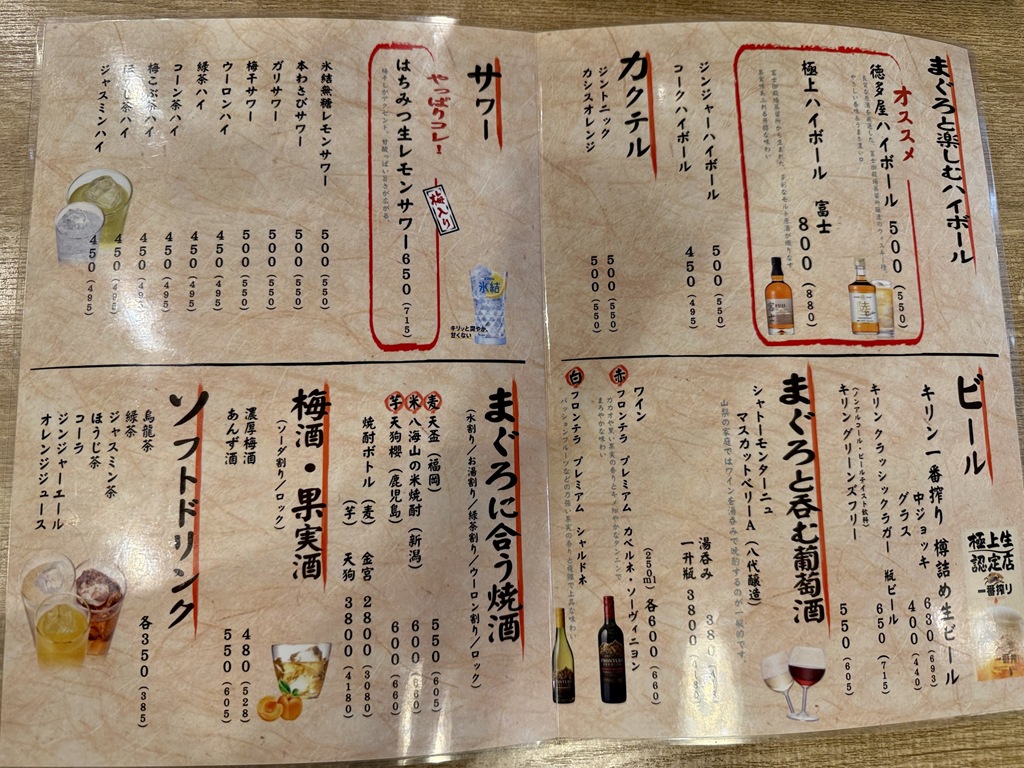 まぐろと楽しむハイボール
オススメ
徳多屋ハイボール 500(550)
極上ハイボール 富士 800(880)
カクテル
ジンジャーハイボール 500(550)
コークハイボール 450(495)
ジントニック 500(550)
カシスオレンジ 500(550)
サワー
やっぱりコレ!
梅入り
はちみつ生レモンサワー650(715)
氷結
キリッと爽やか、
甘くない
氷結無糖レモンサワー 500(550)
本わさびサワー 500(550)
ガリサワー 500(550)
梅干サワー 500(550)
ウーロンハイ 450(495)
緑茶ハイ 450(495)
コーン茶ハイ 450(495)
梅こぶ茶ハイ 450(495)
ほうじ茶ハイ 450(495)
ジャスミンハイ 450(495)
ビール
極上生
認定店
一番搾り
キリン一番搾り 樽詰め生ビール
中ジョッキ 630(693)
グラス 400(440)
キリン クラッシックラガー 瓶ビール 650(715)
(ノンアルコール・ビールテイスト飲料)
キリン グリーンズフリー 550(605)
まぐろと呑む葡萄酒
シャトーモンターニュ
マスカットベリーA(八代醸造)
山梨の家庭ではワインを湯呑みで晩酌するのが一般的です
湯呑み 380
一升瓶 3800
ワイン (250ml) 各600(660)
赤 フロンテラ プレミアム カベルネ・ソーヴィニヨン
まろやかな味わい。
白 フロンテラ プレミアム シャルドネ
まぐろに合う焼酒
(水割り/お湯割り/緑茶割り/ウーロン割り/ロック)
麦 天盃(福岡) 550(605)
米 八海山の米焼酎(新潟) 600(660)
芋 天狗櫻(鹿児島) 600(660)
焼酎ボトル(麦) 金宮 2800(3080)
(芋) 天狗 3800(4180)
梅酒・果実酒
(ソーダ割り/ロック)
濃厚梅酒 480(528)
あんず酒 550(605)
ソフトドリンク
各350(385)
烏龍茶
緑茶
ジャスミン茶
ほうじ茶
コーラ
ジンジャーエール
オレンジジュース